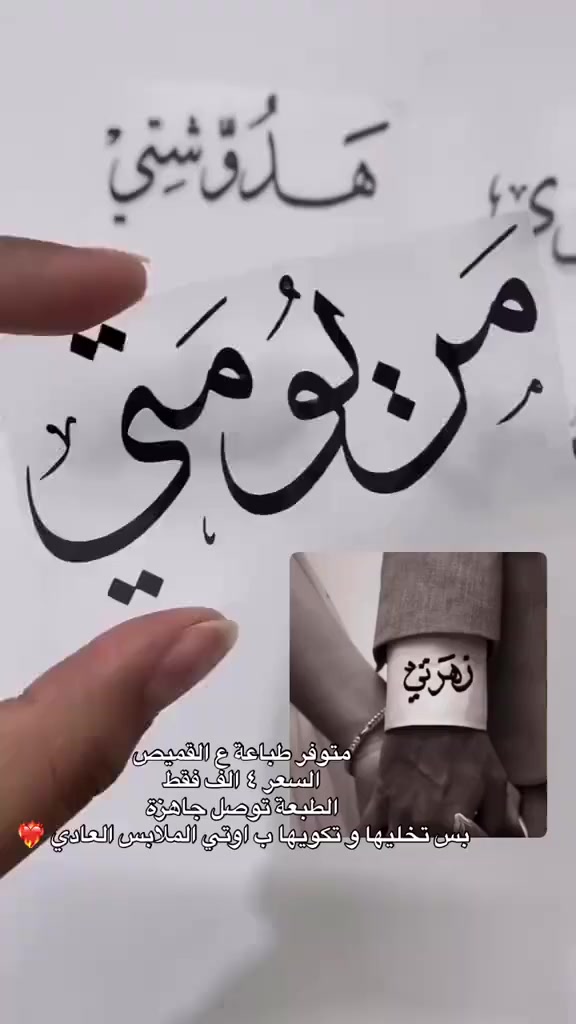 هَدُوَّشتِي
مَريُومَتي
زهرتي
متوفر طباعة ع القميص
السعر ٤ الف فقط
الطبعة توصل جاهزة
بس تخليها و تكويها ب اوتي الملابس العادي ❤️‍🔥